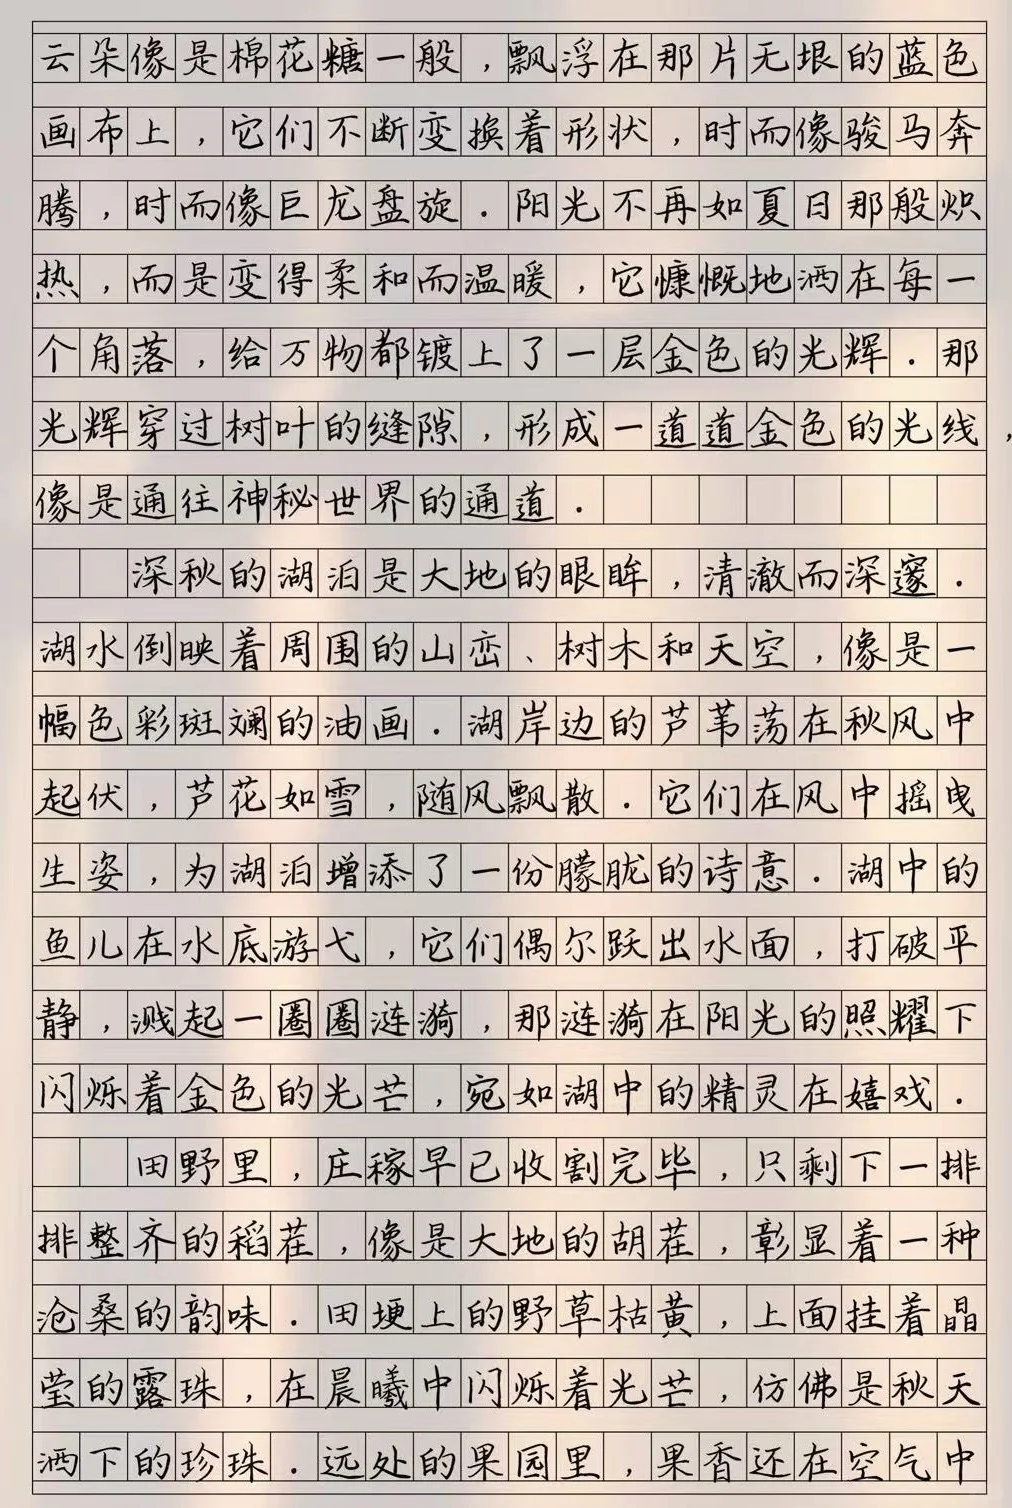 云朵像是棉花糖一般，飘浮在那片无垠的蓝色
画布上，它们不断变换着形状，时而像骏马奔
腾，时而像巨龙盘旋．阳光不再如夏日那般炽
热，而是变得柔和而温暖，它慷慨地洒在每一
个角落，给万物都镀上了一层金色的光辉．那
光辉穿过树叶的缝隙，形成一道道金色的光线，
像是通往神秘世界的通道．
深秋的湖泊是大地的眼眸，清澈而深邃．
湖水倒映着周围的山峦、树木和天空，像是一
幅色彩斑斓的油画．湖岸边的芦苇荡在秋风中
起伏，芦花如雪，随风飘散．它们在风中摇曳
生姿，为湖泊增添了一份朦胧的诗意．湖中的
鱼儿在水底游弋，它们偶尔跃出水面，打破平
静，溅起一圈圈涟漪，那涟漪在阳光的照耀下
闪烁着金色的光芒，宛如湖中的精灵在嬉戏．
田野里，庄稼早已收割完毕，只剩下一排
排整齐的稻茬，像是大地的胡茬，彰显着一种
沧桑的韵味．田埂上的野草枯黄，上面挂着晶
莹的露珠，在晨曦中闪烁着光芒，仿佛是秋天
洒下的珍珠．远处的果园里，果香还在空气中